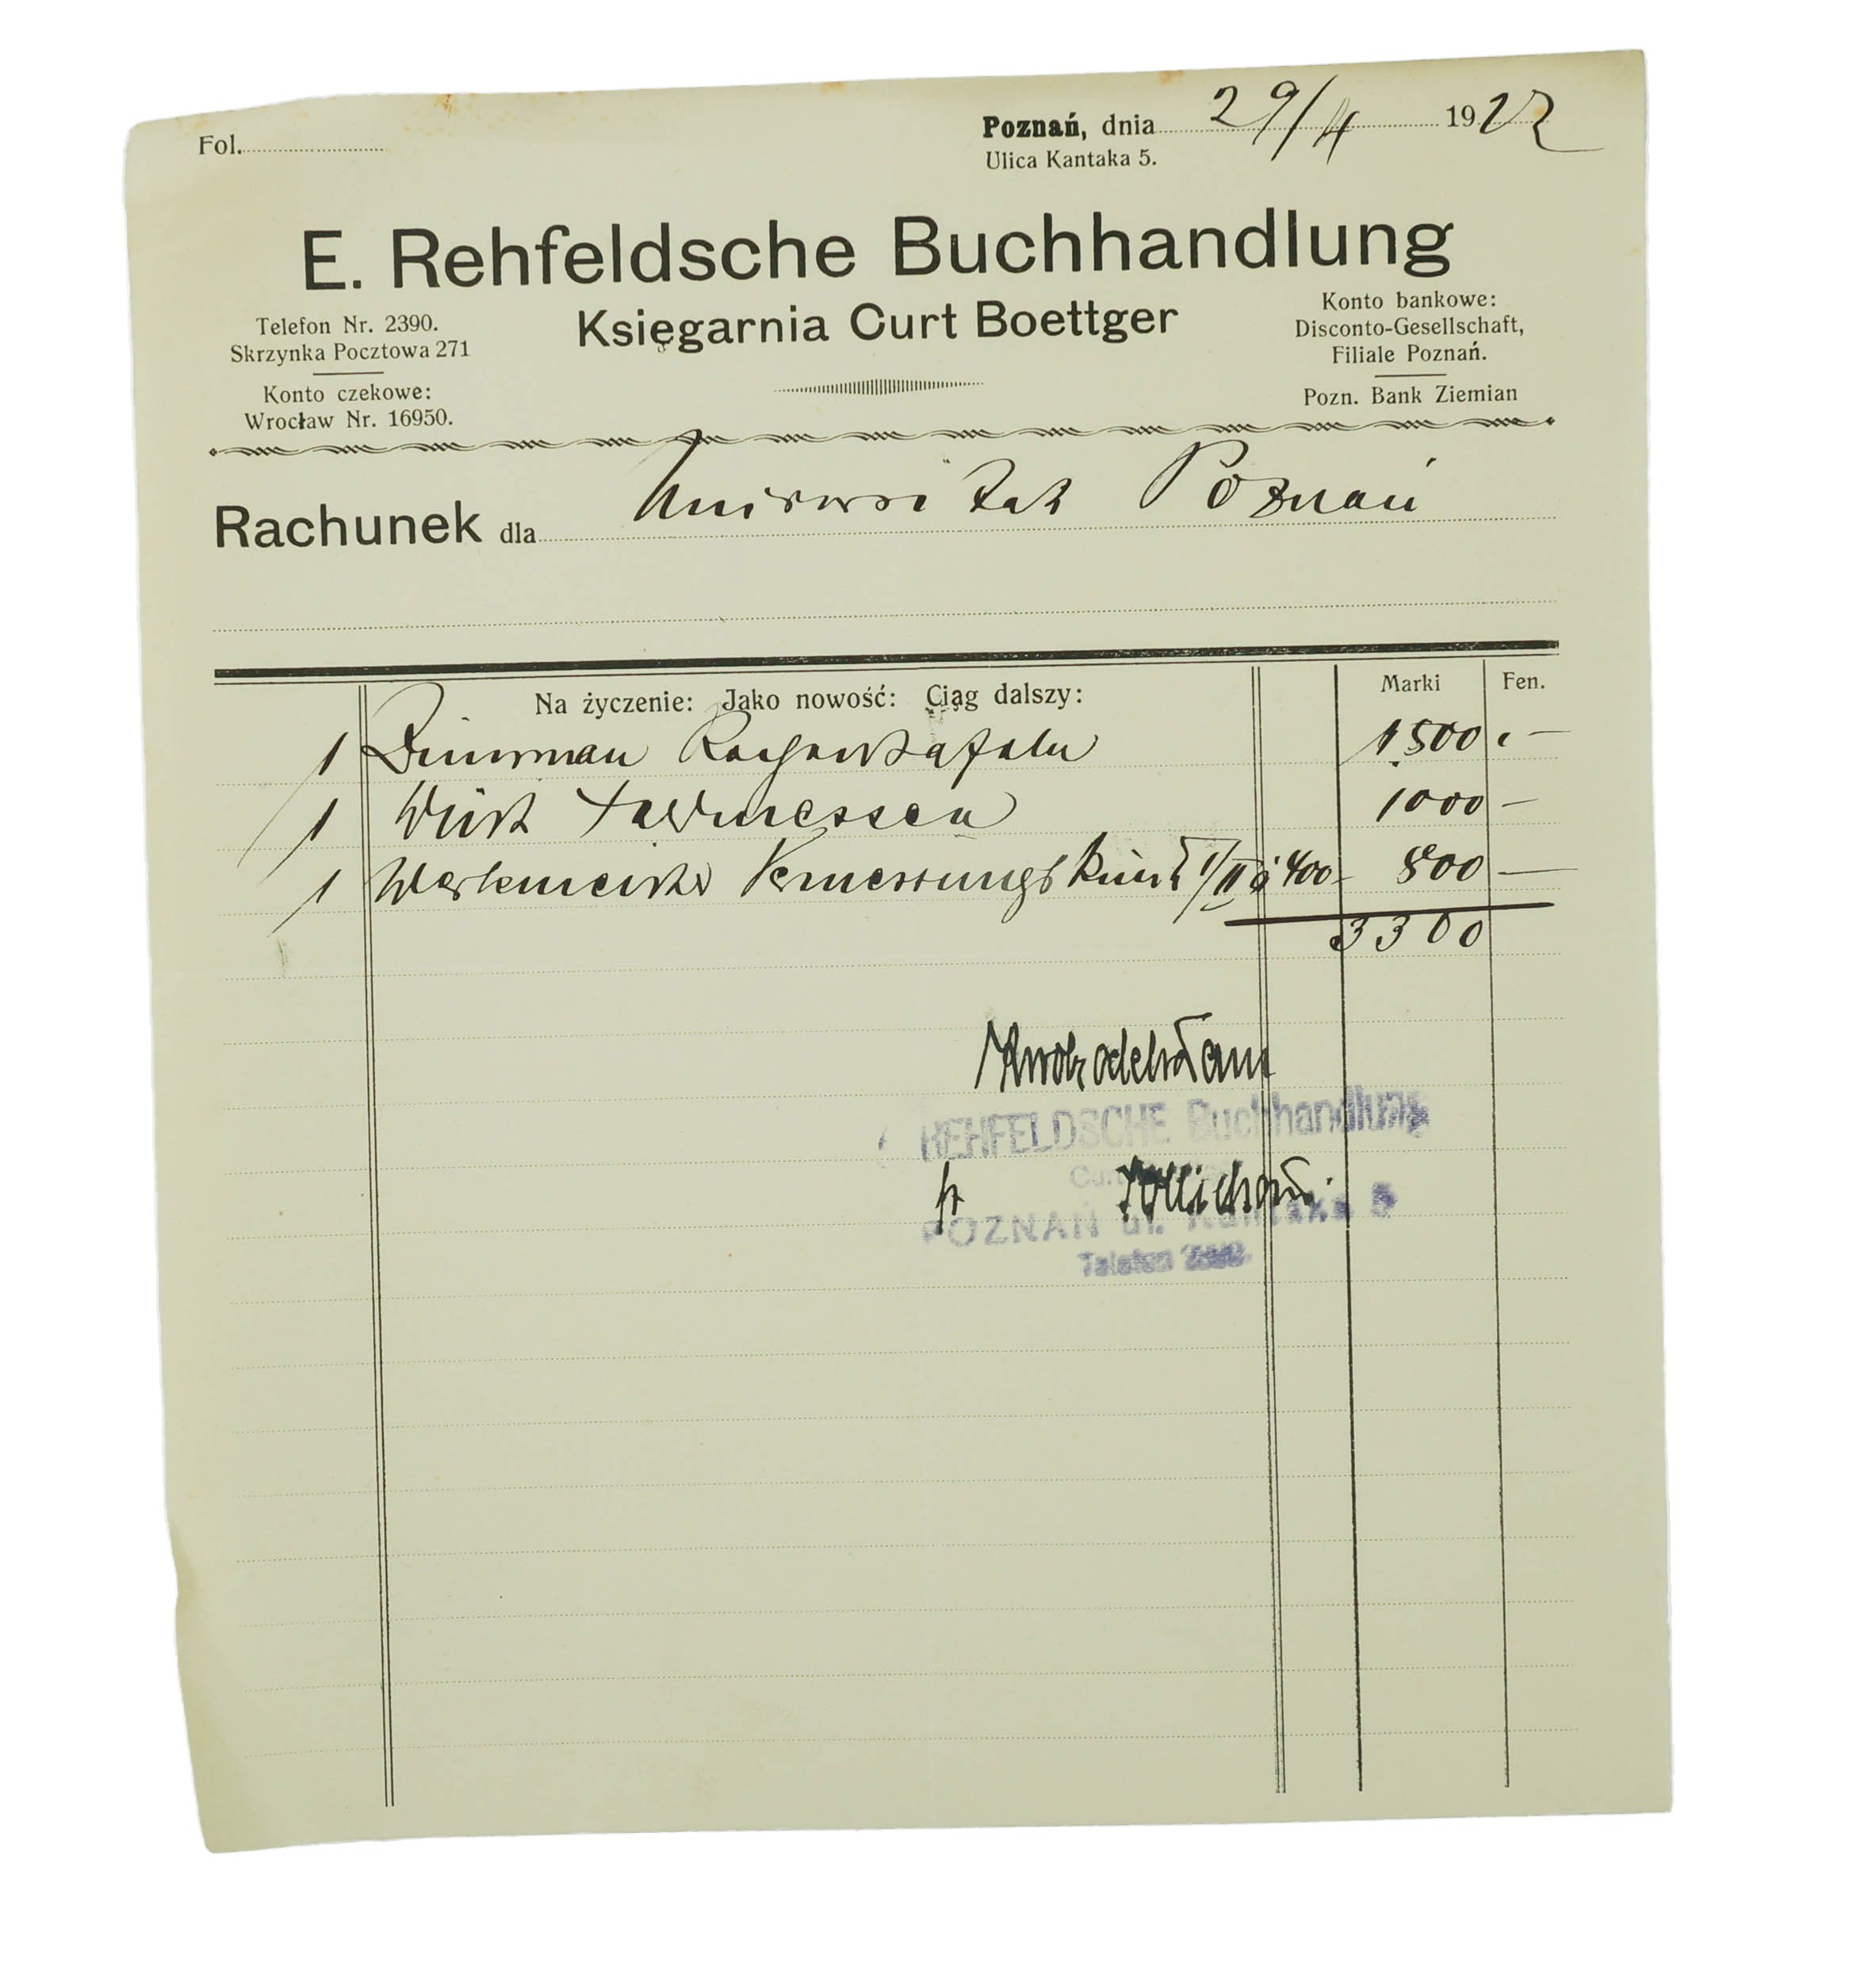 Fol.
Poznań, dnia 29/4 1922
Ulica Kantaka 5.
E. Rehfeldsche Buchhandlung
Księgarnia Curt Boettger
Telefon Nr. 2390.
Skrzynka Pocztowa 271
Konto czekowe:
Wrocław Nr. 16950.
Konto bankowe:
Disconto-Gesellschaft,
Filiale Poznań.
Pozn. Bank Ziemian
Rachunek dla Universität Poznań
Na życzenie: Jako nowość: Ciąg dalszy: Marki Fen.
1 1500 —
1 1000 —
1 Werkmeister Vermessungskunde I/II à 400 800 —
3300
Kwotę odebrałam
REHFELDSCHE Buchhandlung
POZNAŃ ul. Kantaka 5
Telefon